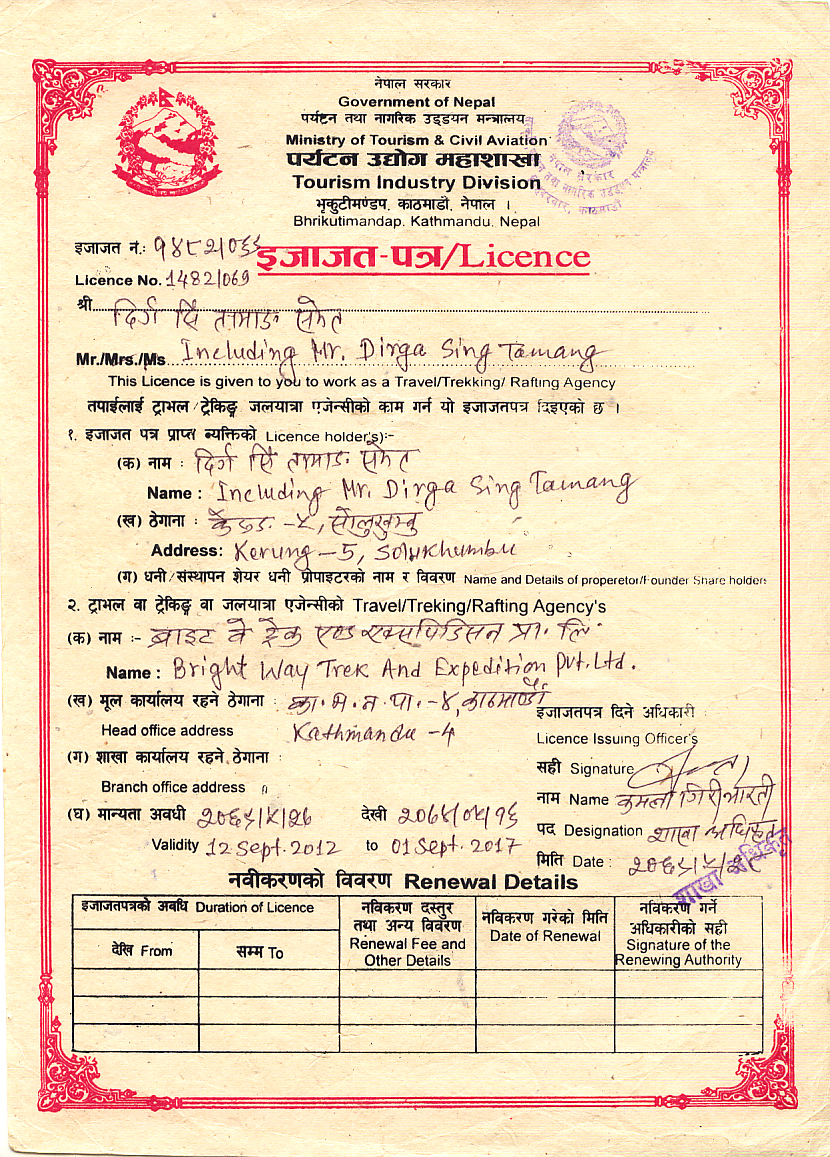 नेपाल सरकार
Government of Nepal
पर्यटन तथा नागरिक उड्डयन मन्त्रालय
Ministry of Tourism & Civil Aviation
पर्यटन उद्योग महाशाखा
Tourism Industry Division
भृकुटीमण्डप, काठमाडौं, नेपाल ।
Bhrikutimandap, Kathmandu, Nepal
इजाजत नं.: १४८२/०६९
इजाजत-पत्र/Licence
Licence No. 1482/069
श्री दिर्ग सिं तामाङ समेत
Mr./Mrs./Ms Including Mr. Dirga Sing Tamang
This Licence is given to you to work as a Travel/Trekking/ Rafting Agency
तपाईलाई ट्राभल / ट्रेकिङ्ग जलयात्रा एजेन्सीको काम गर्न यो इजाजतपत्र दिइएको छ ।
१. इजाजत पत्र प्राप्त व्यक्तिको Licence holder's):-
(क) नाम : दिर्ग सिं तामाङ समेत
Name : Including Mr. Dirga Sing Tamang
(ख) ठेगाना : -५, सोलुखुम्बु
Address: Kerung-5, Solukhumbu
(ग) धनी/संस्थापन शेयर धनी प्रोपाइटरको नाम र विवरण Name and Details of properetor/Founder Share holders
२. ट्राभल वा ट्रेकिङ्ग वा जलयात्रा एजेन्सीको Travel/Treking/Rafting Agency's
(क) नाम :- ब्राइट वे ट्रेक एण्ड एक्सपिडिसन प्रा. लि.
Name : Bright Way Trek And Expedition Pvt. Ltd.
(ख) मूल कार्यालय रहने ठेगाना : का.म.न.पा.-४, काठमाण्डौ
Head office address Kathmandu -4
(ग) शाखा कार्यालय रहने ठेगाना :
Branch office address
(घ) मान्यता अवधी २०६९/५/२७ देखी २०७४/०५/१६
Validity 12 Sept. 2012 to 01 Sept. 2017
इजाजतपत्र दिने अधिकारी
Licence Issuing Officer's
सही Signature
नाम Name कमला गिरी भारती
पद Designation शाखा अधिकृत
मिति Date :
शाखा अधिकृत
नवीकरणको विवरण Renewal Details
इजाजतपत्रको अवधि Duration of Licence
देखि From
सम्म To
नविकरण दस्तुर
तथा अन्य विवरण
Renewal Fee and
Other Details
नविकरण गरेको मिति
Date of Renewal
नविकरण गर्ने
अधिकारीको सही
Signature of the
Renewing Authority